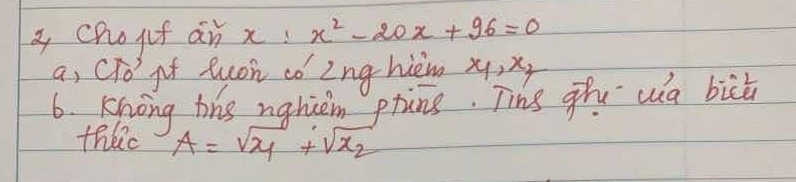 2, Cho pt ẩn x : x² - 20x + 96 = 0
a, CTỏ pt luôn có 2 nghiệm x₁, x₂
b. Không tính nghiệm ptrình. Tính gtrị của biểu
thức A = √x₁ + √x₂